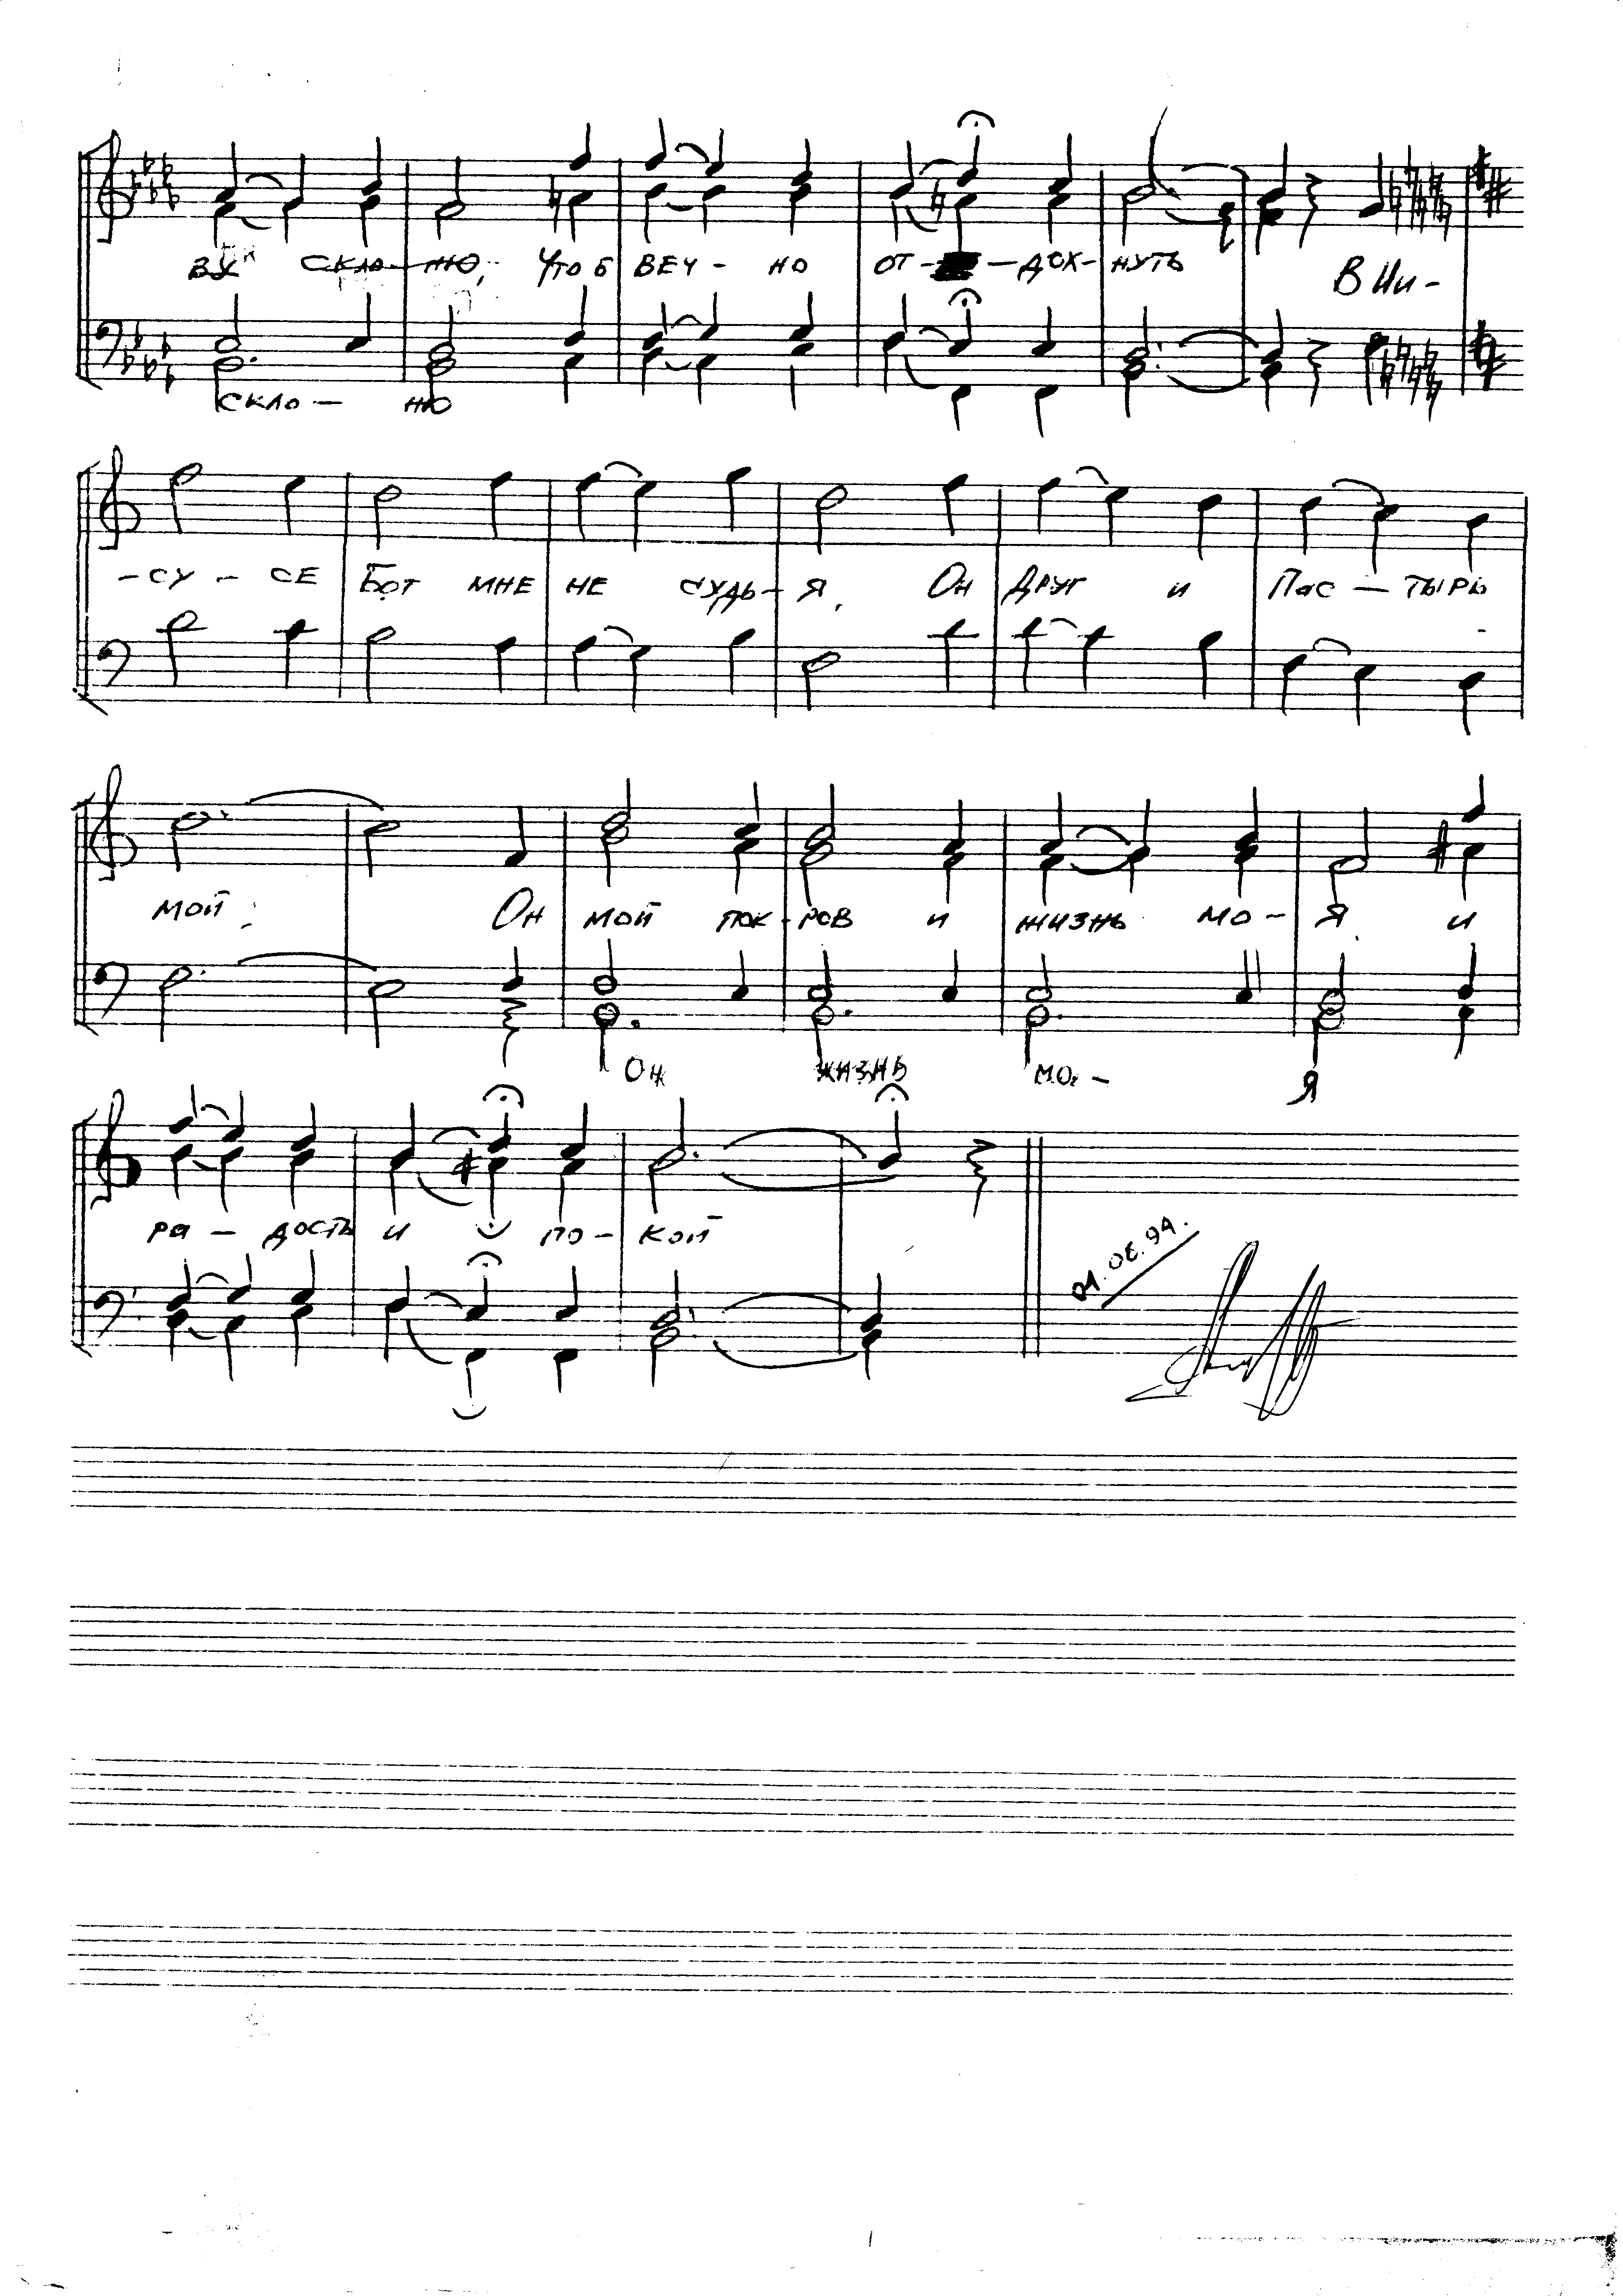 ВУ СКЛО-НЮ, ЧТОБ ВЕЧ - НО ОТ - - ДОХ - НУТЬ В ИИ -
СКЛО - НЮ
- СУ - СЕ БОГ МНЕ НЕ СУДЬ - Я, ОН ДРУГ И ПАС - ТЫРЬ
МОЙ; ОН МОЙ ПОК - РОВ И ЖИЗНЬ МО - Я И
ОН ЖИЗНЬ МО - Я
РА - ДОСТЬ И ПО - КОЙ